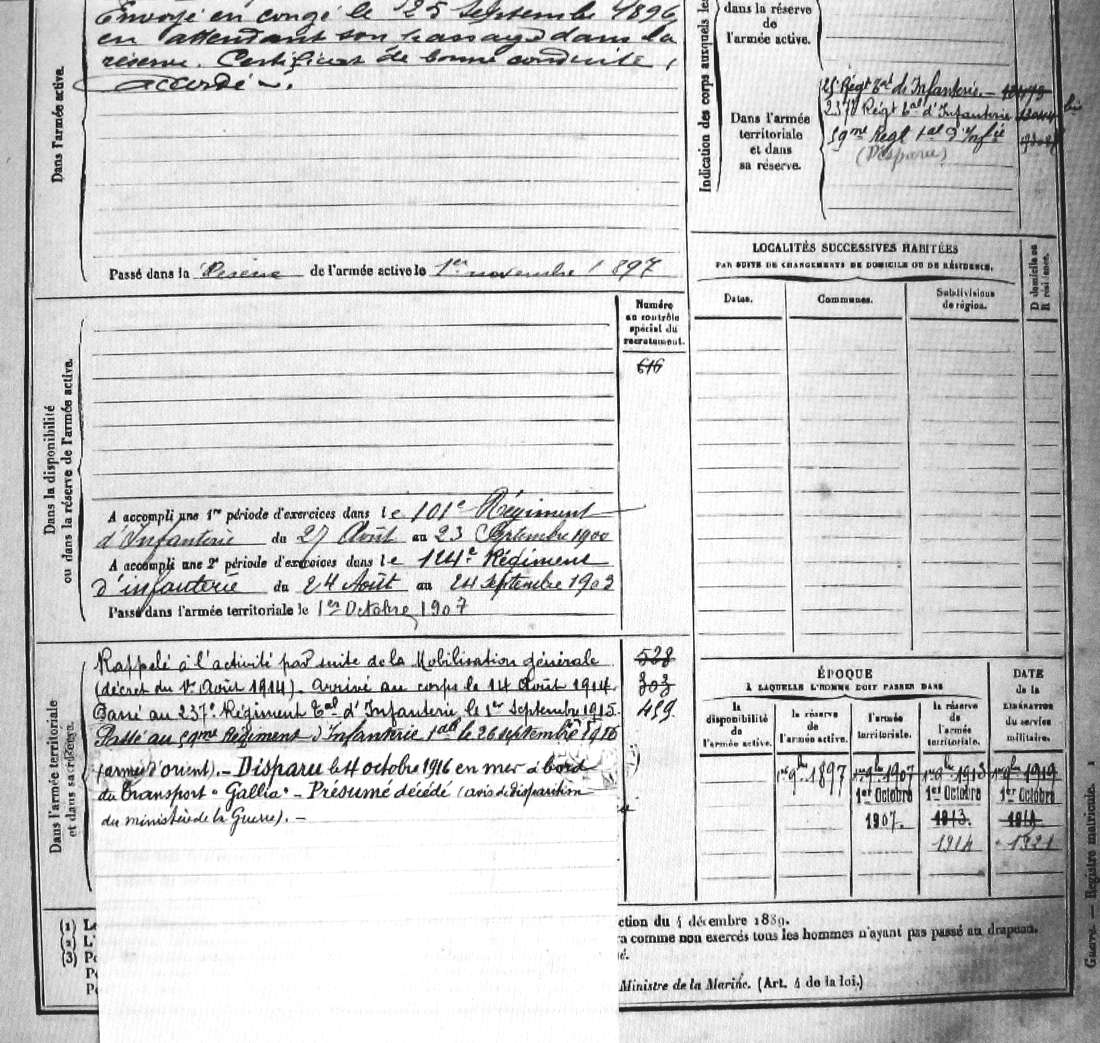 Envoyé en congé le 25 Septembre 1896
en attendant son passage dans la
réserve. Certificat de bonne conduite,
accordé.
Dans l'armée active.
Passé dans la Réserve de l'armée active le 1er novembre 1897
Indication des corps auxquels les
dans la réserve
de
l'armée active.
Dans l'armée
territoriale
et dans
sa réserve.
25 Régt tal d'Infanterie.
237e Régt tal d'Infanterie bis
59me Régt tal d'Infie
(Disparu)
LOCALITÉS SUCCESSIVES HABITÉES
PAR SUITE DE CHANGEMENTS DE DOMICILE OU DE RÉSIDENCE.
Dates.
Communes.
Subdivisions
de région.
D domicile ou
R résidence.
Dans la disponibilité
ou dans la réserve de l'armée active.
Numéro
au contrôle
spécial du
recrutement.
616
A accompli une 1re période d'exercices dans le 101e Régiment
d'Infanterie du 27 Août au 23 Septembre 1900
A accompli une 2e période d'exercices dans le 124e Régiment
d'infanterie du 24 Août au 24 septembre 1903
Passé dans l'armée territoriale le 1er Octobre 1907
Dans l'armée territoriale
et dans sa réserve.
Rappelé à l'activité par suite de la Mobilisation générale
(décret du 1er Août 1914). Arrivé au corps le 14 Août 1914.
Passé au 237e Régiment tal d'Infanterie le 1er Septembre 1915.
Passé au 59me Régiment d'Infanterie tal le 26 septembre 1916
(armée d'orient). – Disparu le 4 octobre 1916 en mer à bord
du Transport "Gallia" – Présumé décédé (avis de disparition
du ministère de la Guerre). –
528
303
459.
ÉPOQUE
A LAQUELLE L'HOMME DOIT PASSER DANS
DATE
de la
LIBÉRATION
du service
militaire.
la
disponibilité
de
l'armée active.
la réserve
de
l'armée active.
l'armée
territoriale.
la réserve
de
l'armée
territoriale.
1er 9bre 1897 1er 9bre 1907 1er 9bre 1913 1er 9bre 1919
1er Octobre 1er Octobre 1er Octobre
1907. 1913.
1914 1921
(1) Le
(2) L'
(3) Po
Po
Po
ction du 4 décembre 1889.
a comme non exercés tous les hommes n'ayant pas passé au drapeau.
é.
Ministre de la Marine. (Art. 4 de la loi.)
Guerre. — Registre matricule.